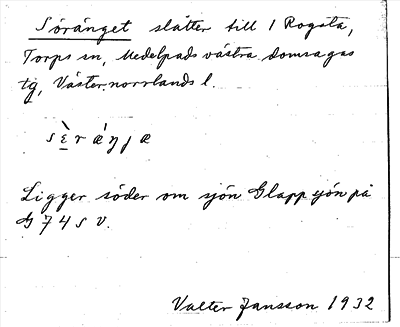 Söränget slåtter till 1 Rogsta,
Torps sn, Medelpads västra domsagas
tg, Västernorrlands l.
s ɛ̀ r ǽ ŋ ɟ æ
Ligger söder om sjön Glappsjön på
G 74 S V.
Valter Jansson 1932